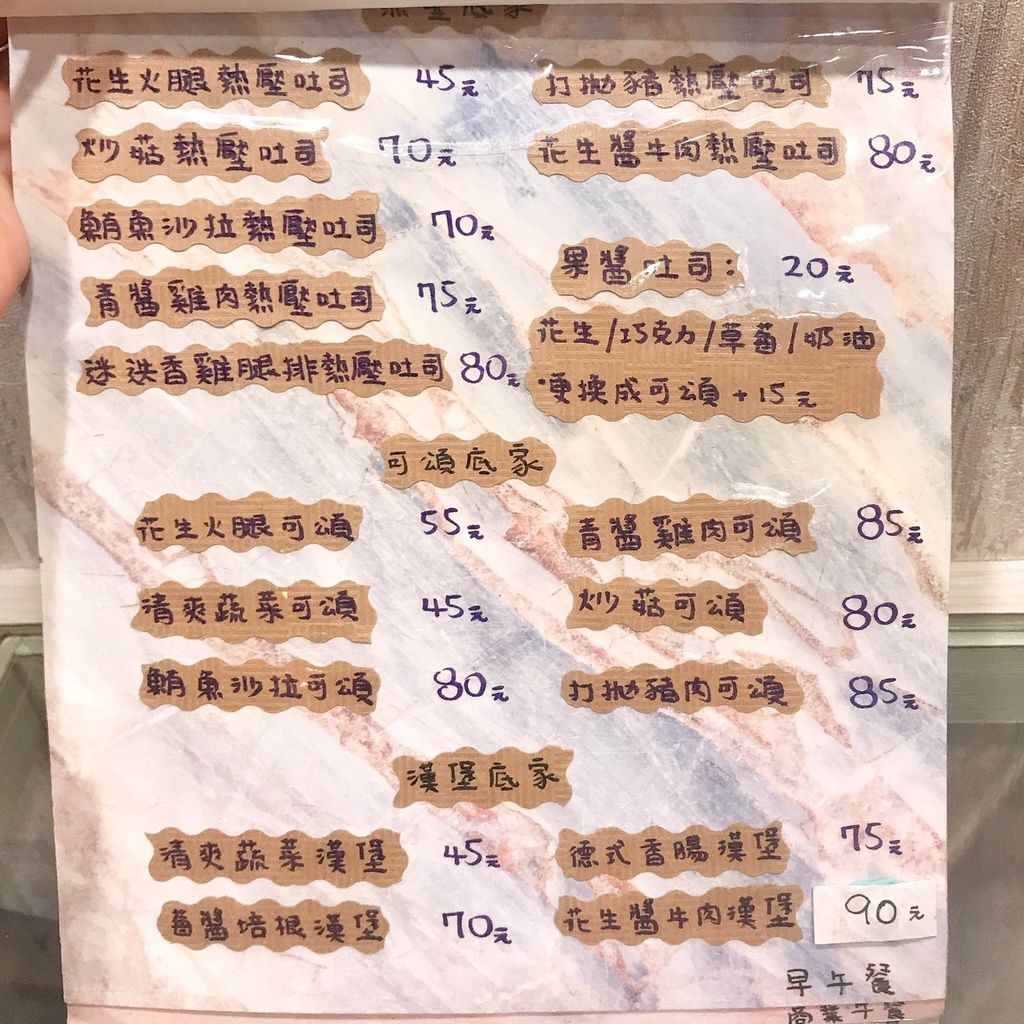 熱壓底家
花生火腿熱壓吐司 45元
炒菇熱壓吐司 70元
鮪魚沙拉熱壓吐司 70元
青醬雞肉熱壓吐司 75元
迷迭香雞腿排熱壓吐司 80元
打拋豬熱壓吐司 75元
花生醬牛肉熱壓吐司 80元
果醬吐司: 20元
花生/巧克力/草莓/奶油
要換成可頌+15元
可頌底家
花生火腿可頌 55元
清爽蔬菜可頌 45元
鮪魚沙拉可頌 80元
青醬雞肉可頌 85元
炒菇可頌 80元
打拋豬肉可頌 85元
漢堡底家
清爽蔬菜漢堡 45元
魯醬培根漢堡 70元
德式香腸漢堡 75元
花生醬牛肉漢堡 90元
早午餐
商業午餐